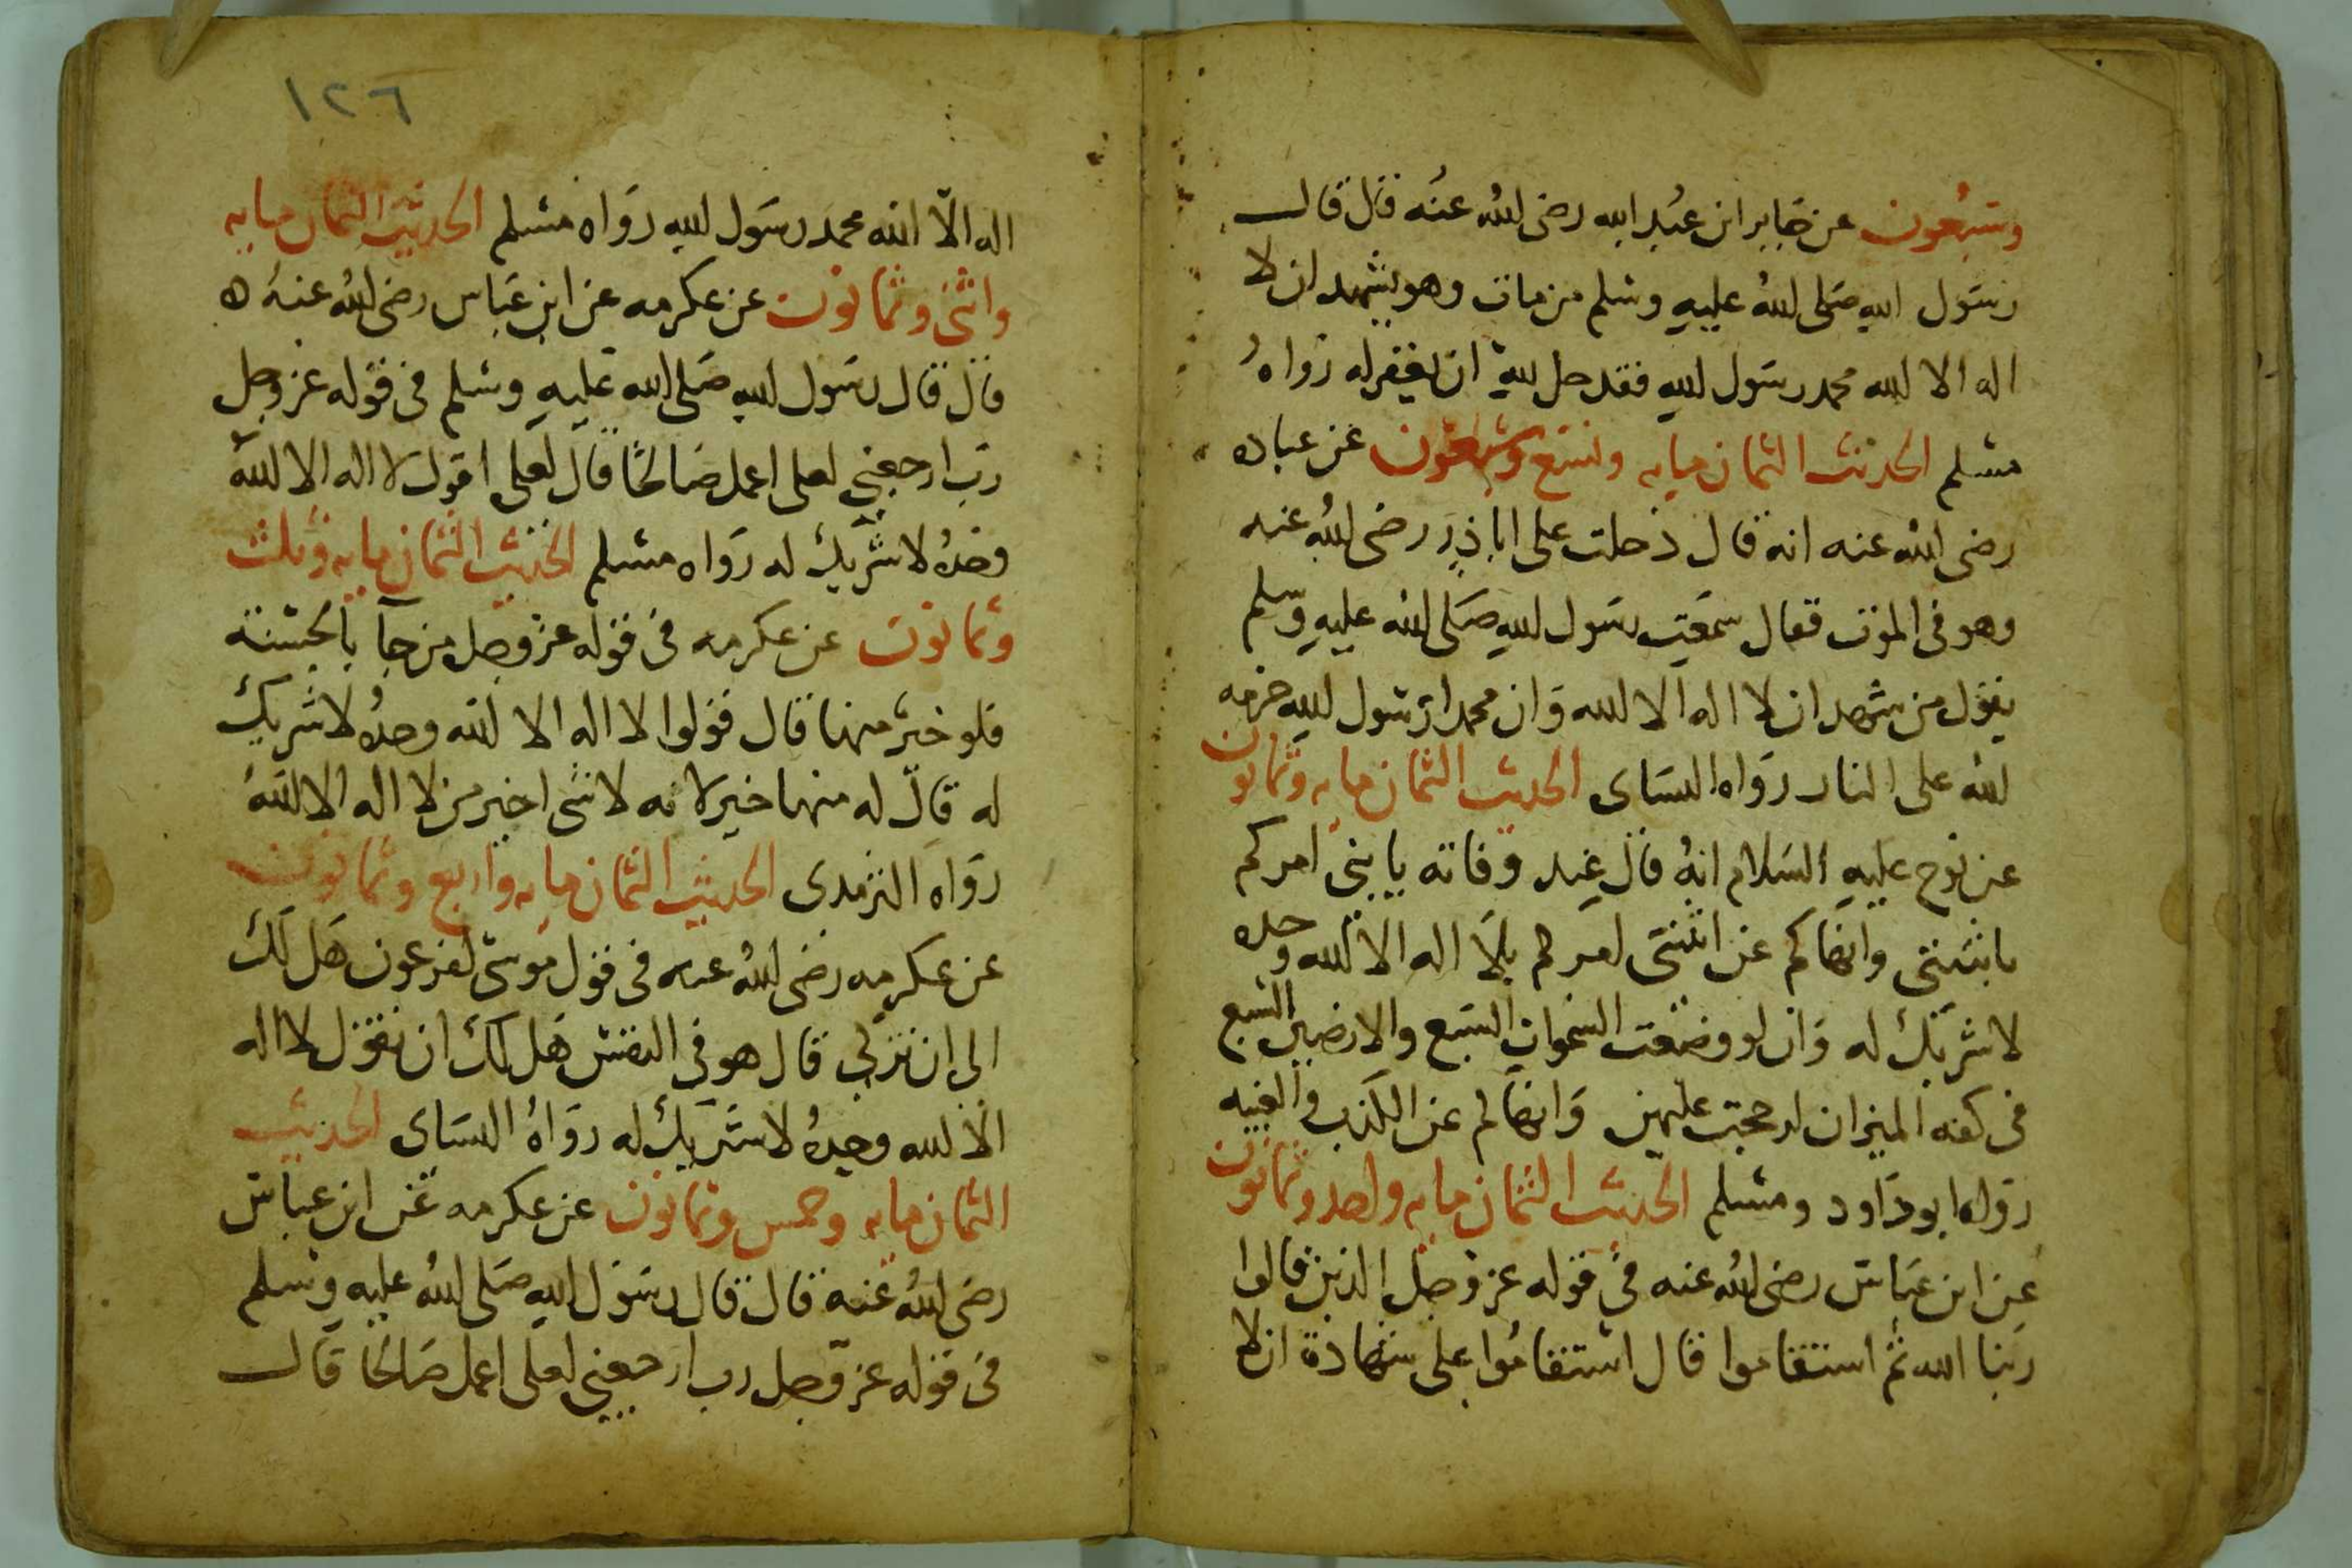 وسبعون عن جابر ابن عبد الله رضى الله عنه قال قال
رسول الله صلى الله عليه وسلم من مات وهو يشهد ان لا
اله الا الله محمد رسول الله فقد حل لله ان يغفر له رواه
مسلم الحديث الثمان مايه وتسع وسبعون عن عباده
رضى الله عنه انه قال دخلت على اباذر رضى الله عنه
وهو فى الموت فقال سمعت رسول الله صلى الله عليه وسلم
يقول من شهد ان لا اله الا الله وان محمدا رسول الله حرمه
الله على النار رواه النساى الحديث الثمان مايه وثمانون
عن نوح عليه السلام انه قال عند وفاته يا بنى امركم
باثنتى وانهاكم عن اثنتى امركم بلا اله الا الله وحده
لا شريك له وان لو وضعت السموات السبع والارضين السبع
فى كفه الميزان لرجحت عليهن وانهاكم عن الكذب والغيبه
رواه ابو داود ومسلم الحديث الثمان مايه واحد وثمانون
عن ابن عباس رضى الله عنه فى قوله عز وجل الذين قالوا
ربنا الله ثم استقاموا قال استقاموا على شهادة ان لا
١٢٦
اله الا الله محمد رسول الله رواه مسلم الحديث الثمان مايه
واثنى وثمانون عن عكرمه عن ابن عباس رضى الله عنه ه
قال قال رسول الله صلى الله عليه وسلم فى قوله عز وجل
رب ارجعنى لعلى اعمل صالحا قال لعلى اقول لا اله الا الله
وحده لا شريك له رواه مسلم الحديث الثمان مايه وثلث
وثمانون عن عكرمه فى قوله عز وجل من جآ بالحسنة
فلو خير منها قال قولوا لا اله الا الله وحده لا شريك
له قال له منها خير لانه لا شى اخير من لا اله الا الله
رواه الترمدى الحديث الثمان مايه واربع وثمانون
عن عكرمه رضى الله عنه فى قول موسى لفرعون هل لك
الى ان تزكى قال هو فى النفس هل لك ان تقول لا اله
الا الله وحده لا شريك له رواه النساى الحديث
الثمان مايه وخمس وثمانون عن عكرمه عن ابن عباس
رضى الله عنه قال قال رسول الله صلى الله عليه وسلم
فى قوله عز وجل رب ارجعنى لعلى اعمل صالحا قال